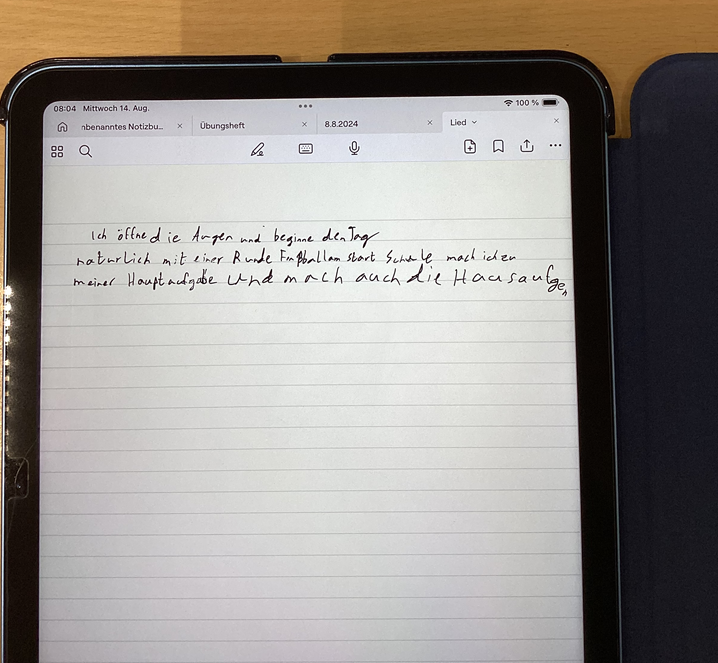 08:04 Mittwoch 14. Aug.
100 %
nbenanntes Notizbu...
Übungsheft
8.8.2024
Lied
Ich öffne die Augen und beginne den Tag
natürlich mit einer Runde Fußball am start Schule mach ich zu
meiner Hauptaufgabe und mach auch die Hausaufgen